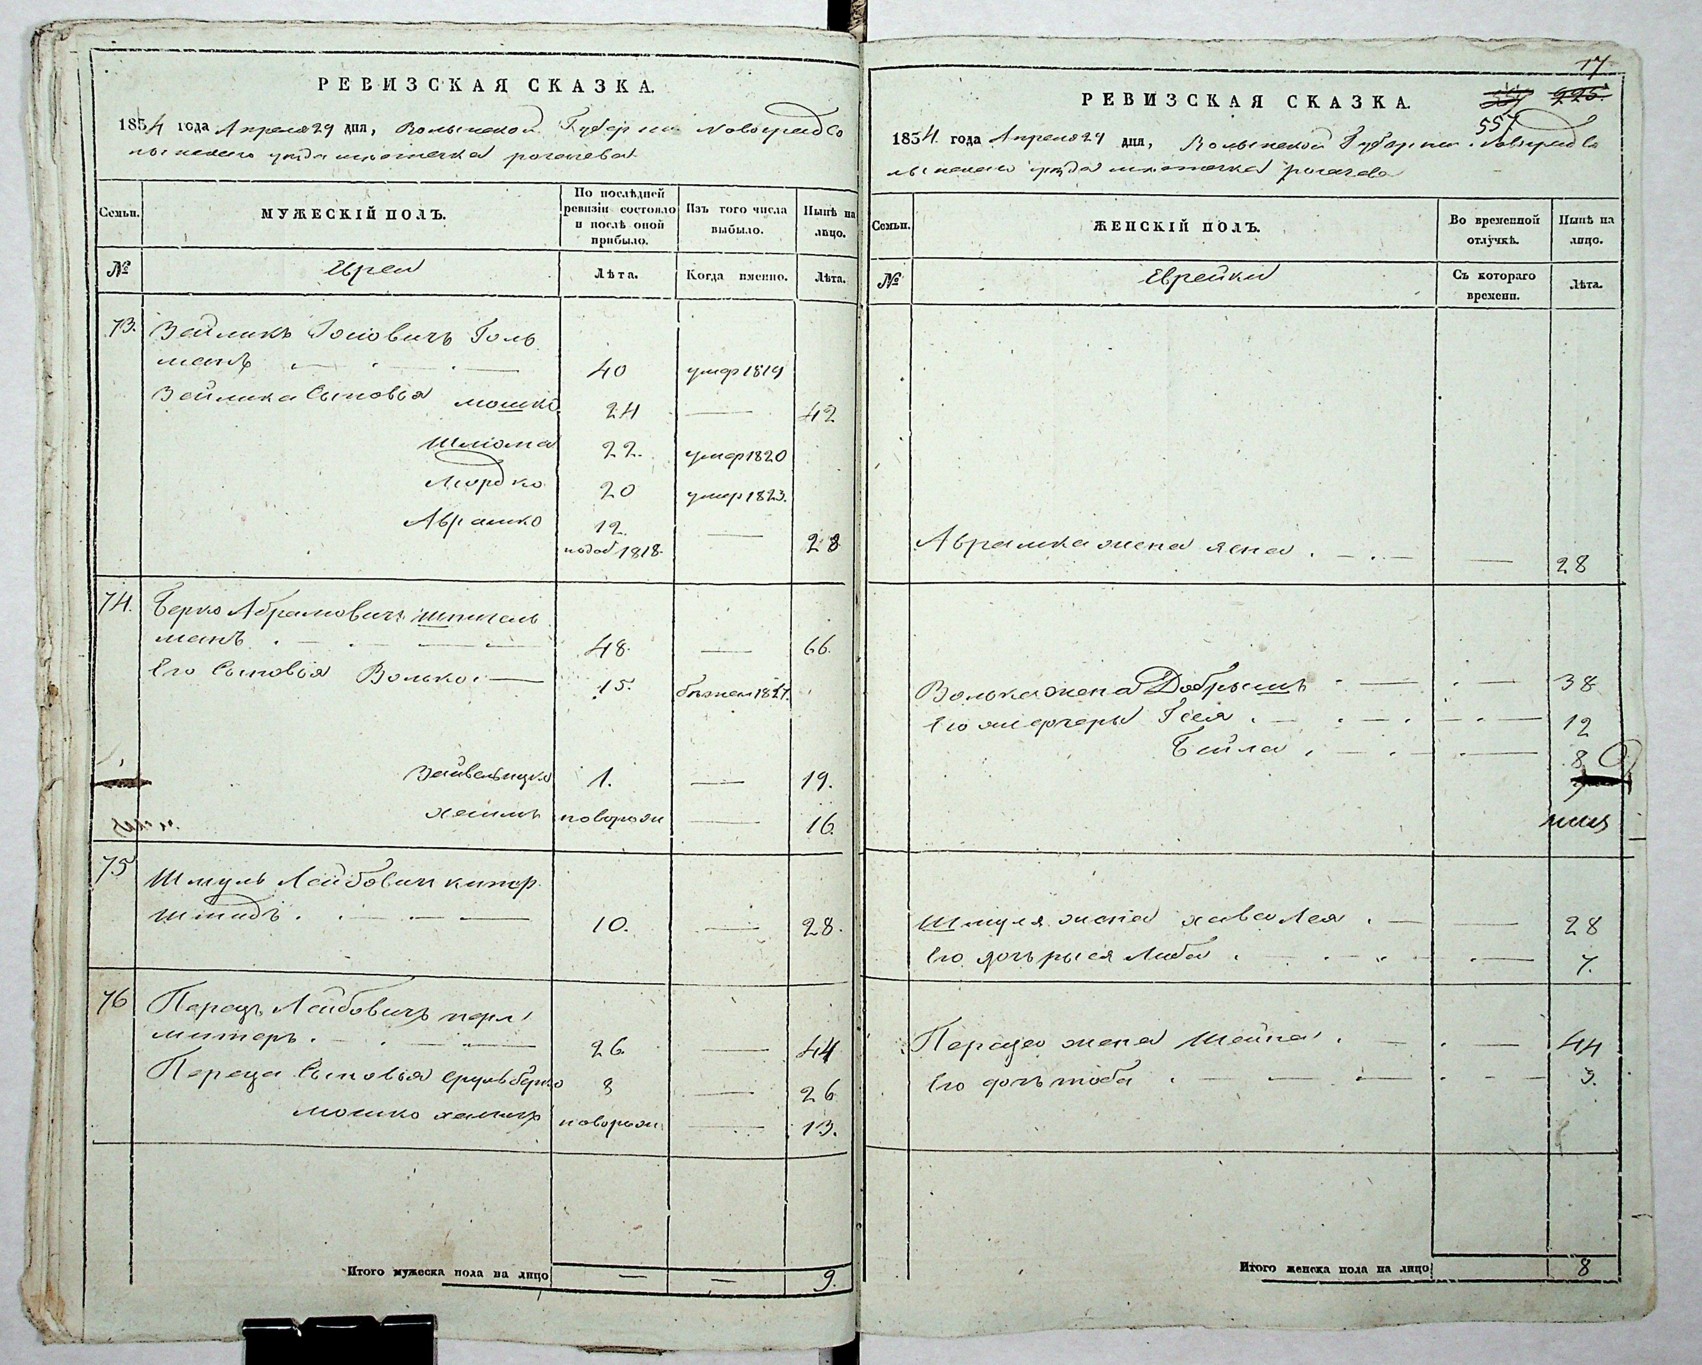 РЕВИЗСКАЯ СКАЗКА.
1834 года Апреля 29 дня, Волынской Губернии Новоградво
лынскаго уезда местечка рогачева
Семьи.
МУЖЕСКІЙ ПОЛЪ.
По послѣдней ревизіи состояло и послѣ оной прибыло.
Изъ того числа выбыло.
Нынѣ на лицо.
№
Евреи
Лѣта.
Когда именно.
Лѣта.
73. Зейликъ Іосіовичъ Голь
манъ 40 умер 1819
Зейлика Сыновья мошко 24 — 42
Шлиома 22. умер 1820
Мордко 20 умер 1823.
Аврамко 12
1818. — 28
74. Берко Абрамовичъ шпиль
манъ 48 — 66.
Его Сыновья Волько 15. 1827.
1. — 19.
хаимъ новорож — 16.
75 Шмуль Лейбович
шмидъ 10. — 28.
76 Перецъ Лейбовичъ перл
митеръ 26 — 44
Переца Сыновья сруль берко 8 — 26
мошко новорож — 13.
Итого мужеска пола на лицо — — 9.
17
225.
557
РЕВИЗСКАЯ СКАЗКА.
1834. года Апреля 29 дня, Волынской Губернии Новоградво
лынскаго уезда местечка рогачева
Семьи.
ЖЕНСКІЙ ПОЛЪ.
Во временной отлучкѣ.
Нынѣ на лицо.
№
Еврейки
Съ котораго времени.
Лѣта.
Аврамка жена — 28
Волька жена Добрышъ — 38
Его дочеры Гися — 12
Бейла — 8
Шмуля жена хава Лея — 28
Его дочь рыся Либа — 7.
Переца жена Шейна — 44
Его дочь тоба — 3.
Итого женска пола на лицо 8